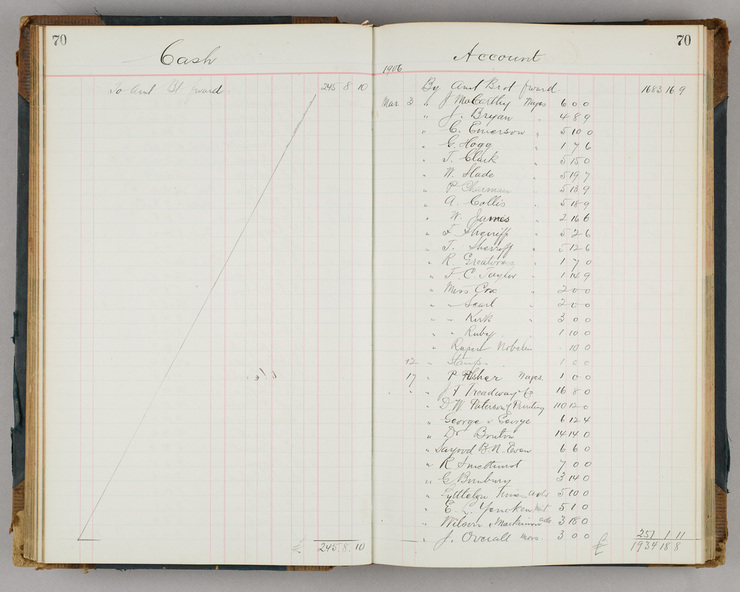 70
Cash
To Amt Bt forward 245 8 10
£ 245. 8. 10
Account
70
1906
By Amt Brot forward 1683 16 9
Mar 3 " J McCarthy Wages 6 0 0
" J. Bryan " 4 8 9
" C. Emerson " 5 10 0
" G. Hogg " 1 7 6
" T. Clark " 5 15 0
" W. Slade " 5 19 7
" P. Sherman " 5 13 9
" A. Collis " 5 18 9
" W. James " 2 16 6
" F. Sherriff " 5 2 6
" T. Sherriff " 5 12 6
" R. " 1 7 0
" F. C. Taylor " 1 14 9
" Miss Cox " 2 0 0
" " 2 0 0
" " Kirk " 3 0 0
" " Ruby " 1 10 0
" Rupert 10 0
12 " Stamps 1 0 0
17 " P Usher Wages 1 0 0
" " J F Treadway & Co 16 8 0
" D. W. Paterson Printing 110 12 0
" George & George 6 12 4
" Dr 14 14 0
" 6 6 0
" R Smethurst 7 0 0
" C Bunbury 3 14 0
" Lyttelton Times ads 5 10 0
" E. L. Yencken 5 1 0
" Wilson & Mackinnon ads 3 18 0
" J. Overall 3 0 0
251 1 11
£ 1934 18 8